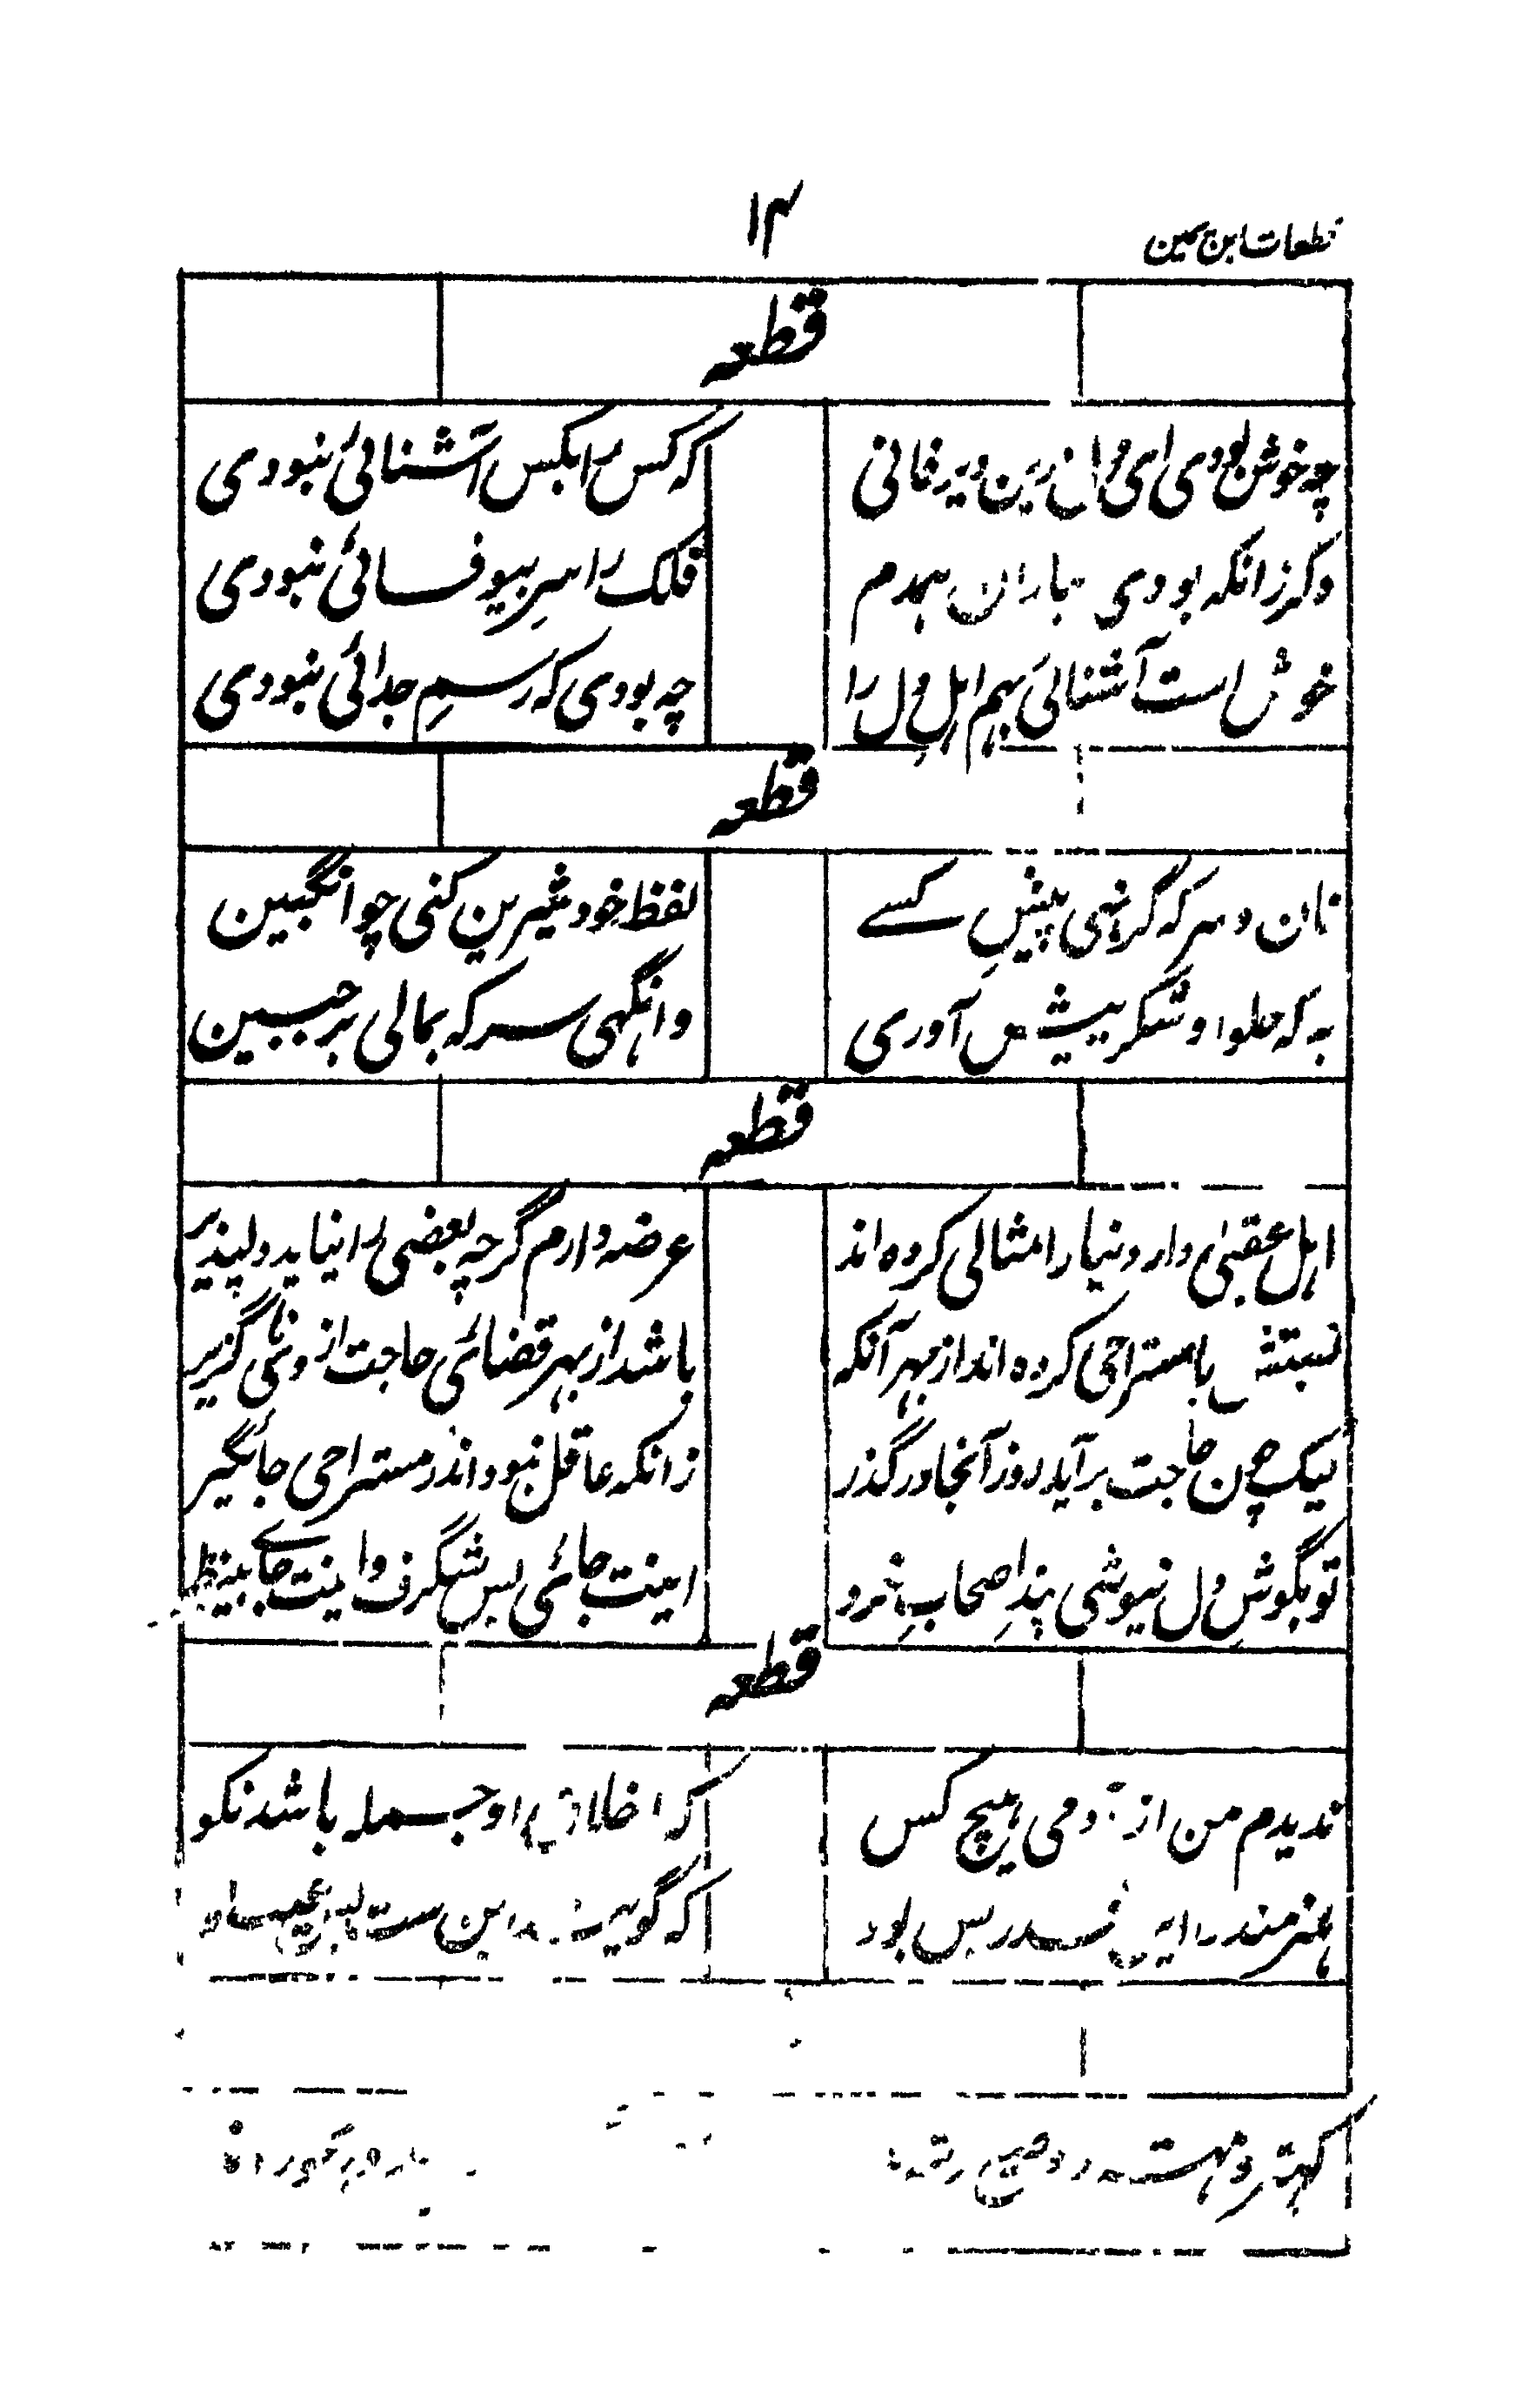 قطعات ابن یمین
۱۴
قطعه
چه خوش بودی ای دل درین دیر فانی
که کس را بکس آشنائی نبودی
وگر زانکه بودی بیاران همدم
فلک را سر بیوفائی نبودی
خوش است آشنائی بهم اهل دل را
چه بودی که رسمِ جدائی نبودی
قطعه
نان و سرکه گر نهی پیشِ کسے
لفظ خود شیرین کنی چو انگبین
به که حلوا و شکر پیش آوری
وانگهی سرکه بمالی بر جبین
قطعه
اهل عقبیٰ دار دنیا را مثالی کرده اند
عرضه دارم گرچه بعضی را نیاید دلپذیر
نسبتش با مستراحی کرده اند از بهر آنکه
باشد از بهر قضائی حاجت از وی ناگزیر
لیک چون حاجت برآید زود از آنجا درگذر
زانکه عاقل نبود اندر مستراحی جائگیر
تو بگوش دل نیوشی پندِ اصحابِ خرد
اینت جائی بس شگرف و اینت جاے بینظیر
قطعه
ندیدم من از آدمی هیچ کس
که اخلاق او جمله باشد نکو
هنرمند را این قدر بس بود
که گویند این ست
کهتر و مهتر